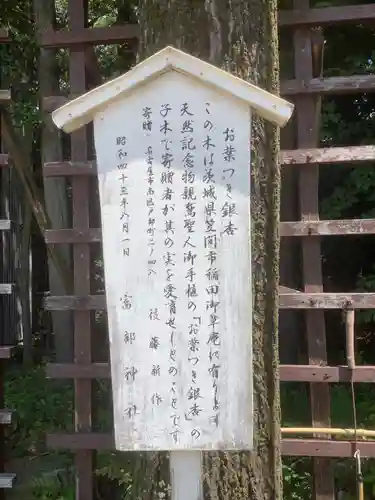 お葉つき銀杏
この木は茨城県笠間市稲田御草庵に有ります
天然記念物親鸞聖人御手植の「お葉つき銀杏」の
子木を寄贈者が其の実を愛育せしものことです
寄贈・名古屋市南区戸部町二ノ四八
後藤新作
昭和四十三年八月一日
富部神社